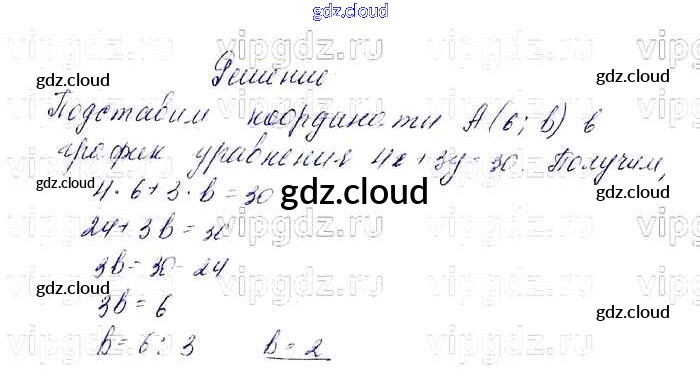 gdz.cloud
vipgdz.ru vipgdz.ru vipgdz.ru
Решение
gdz.cloud gdz.cloud
Подставим координаты A(6; b) в
график уравнения 4x + 3y = 30. Получим,
4 · 6 + 3 · b = 30
gdz.cloud gdz.cloud gdz.cloud
24 + 3b = 30
vipgdz.ru vipgdz.ru vipgdz.ru
3b = 30 - 24
gdz.cloud gdz.cloud
3b = 6
vipgdz.ru vipgdz.ru vipgdz.ru
b = 6 : 3 b = 2